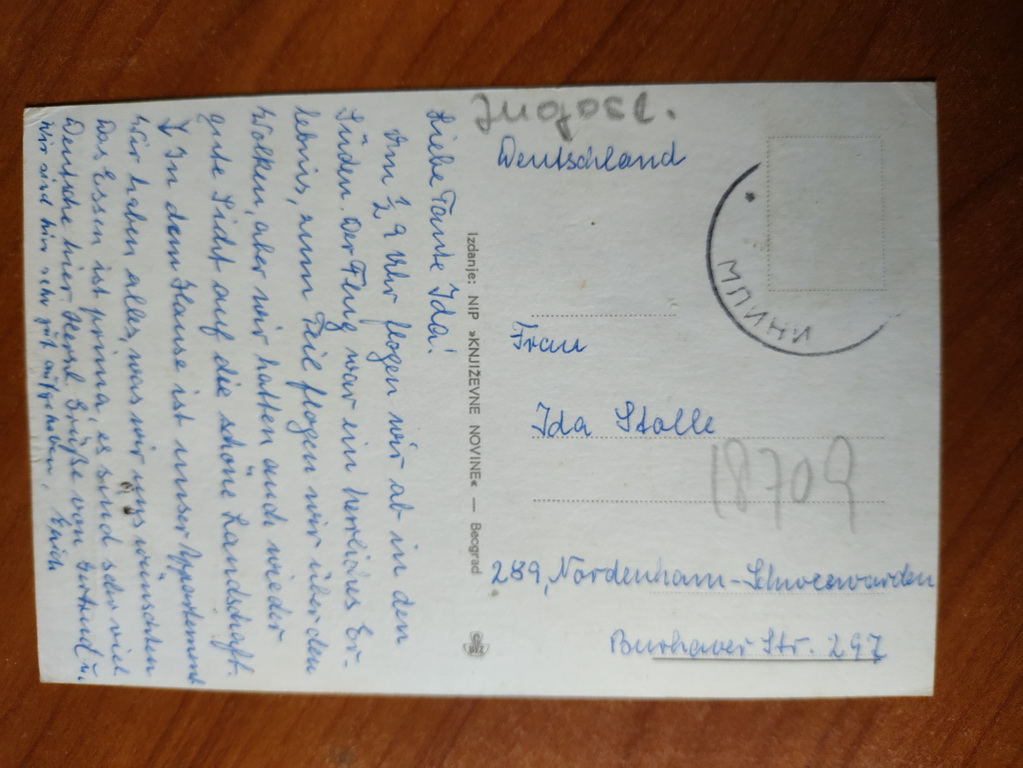 Liebe Tante Ida!
Um ½ 9 Uhr flogen wir ab in den
Süden. Der Flug war ein herrliches Er-
lebnis, zum Teil flogen wir über den
Wolken, aber wir hatten auch wieder
gute Sicht auf die schöne Landschaft.
In dem Hause ist unser Appartement
wir haben alles, was wir uns wünschten
Das Essen ist prima, es sind sehr viel
Deutsche hier. Herzl. Grüße von u.
wir sind hier sehr gut aufgehoben, Erich
Izdanje: NIP »KNJIŽEVNE NOVINE« — Beograd
Jugosl.
Deutschland
МЛИНИ
Frau
Ida Stolle
18709
289, Nordenham-Schweewarden
Burhaver Str. 297